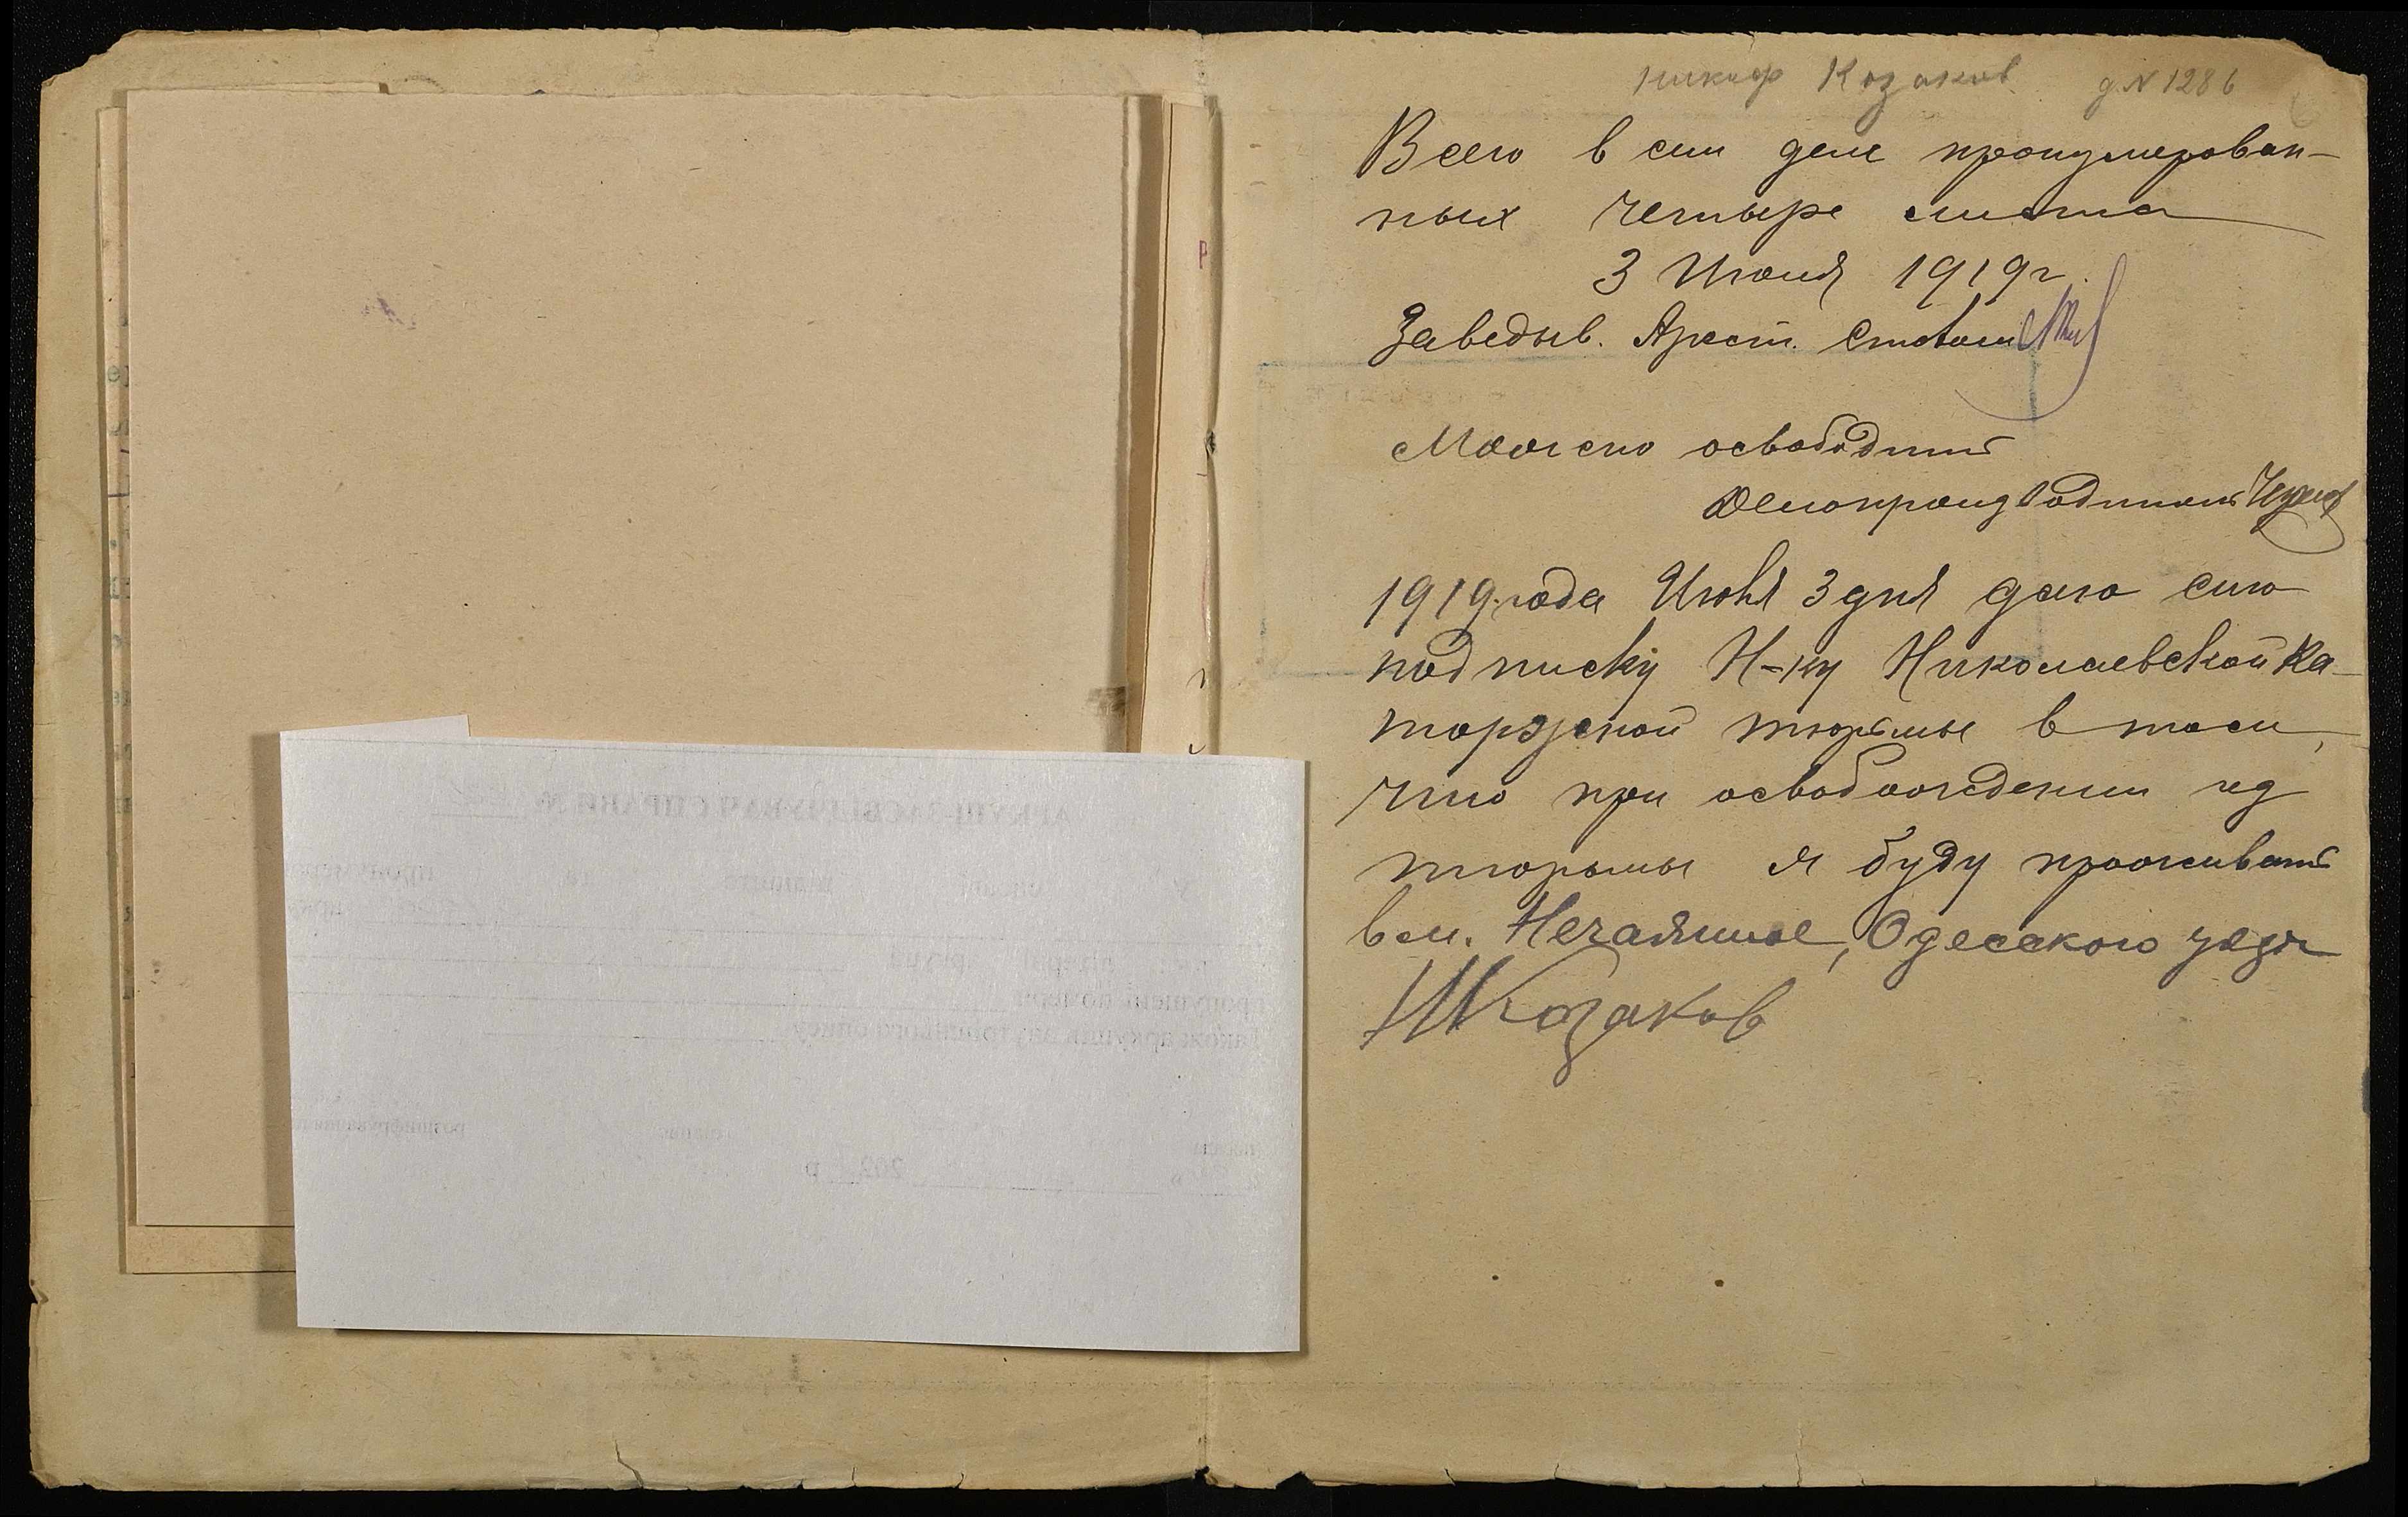 Никиф Козаков д N 1286
Всего в сем деле пронумерован-
ных четыре листа
3 Июня 1919 г.
Заведыв. Арест. Столом
Можно освободить
Делопроизводитель
1919 года Июня 3 дня даю сию
подписку Н-ку Николаевской Ка-
торжской тюрьмы в том,
что при освобождении из
тюрьмы я буду проживать
в м. Нечаянное, Одесского уезда
Н Козаков